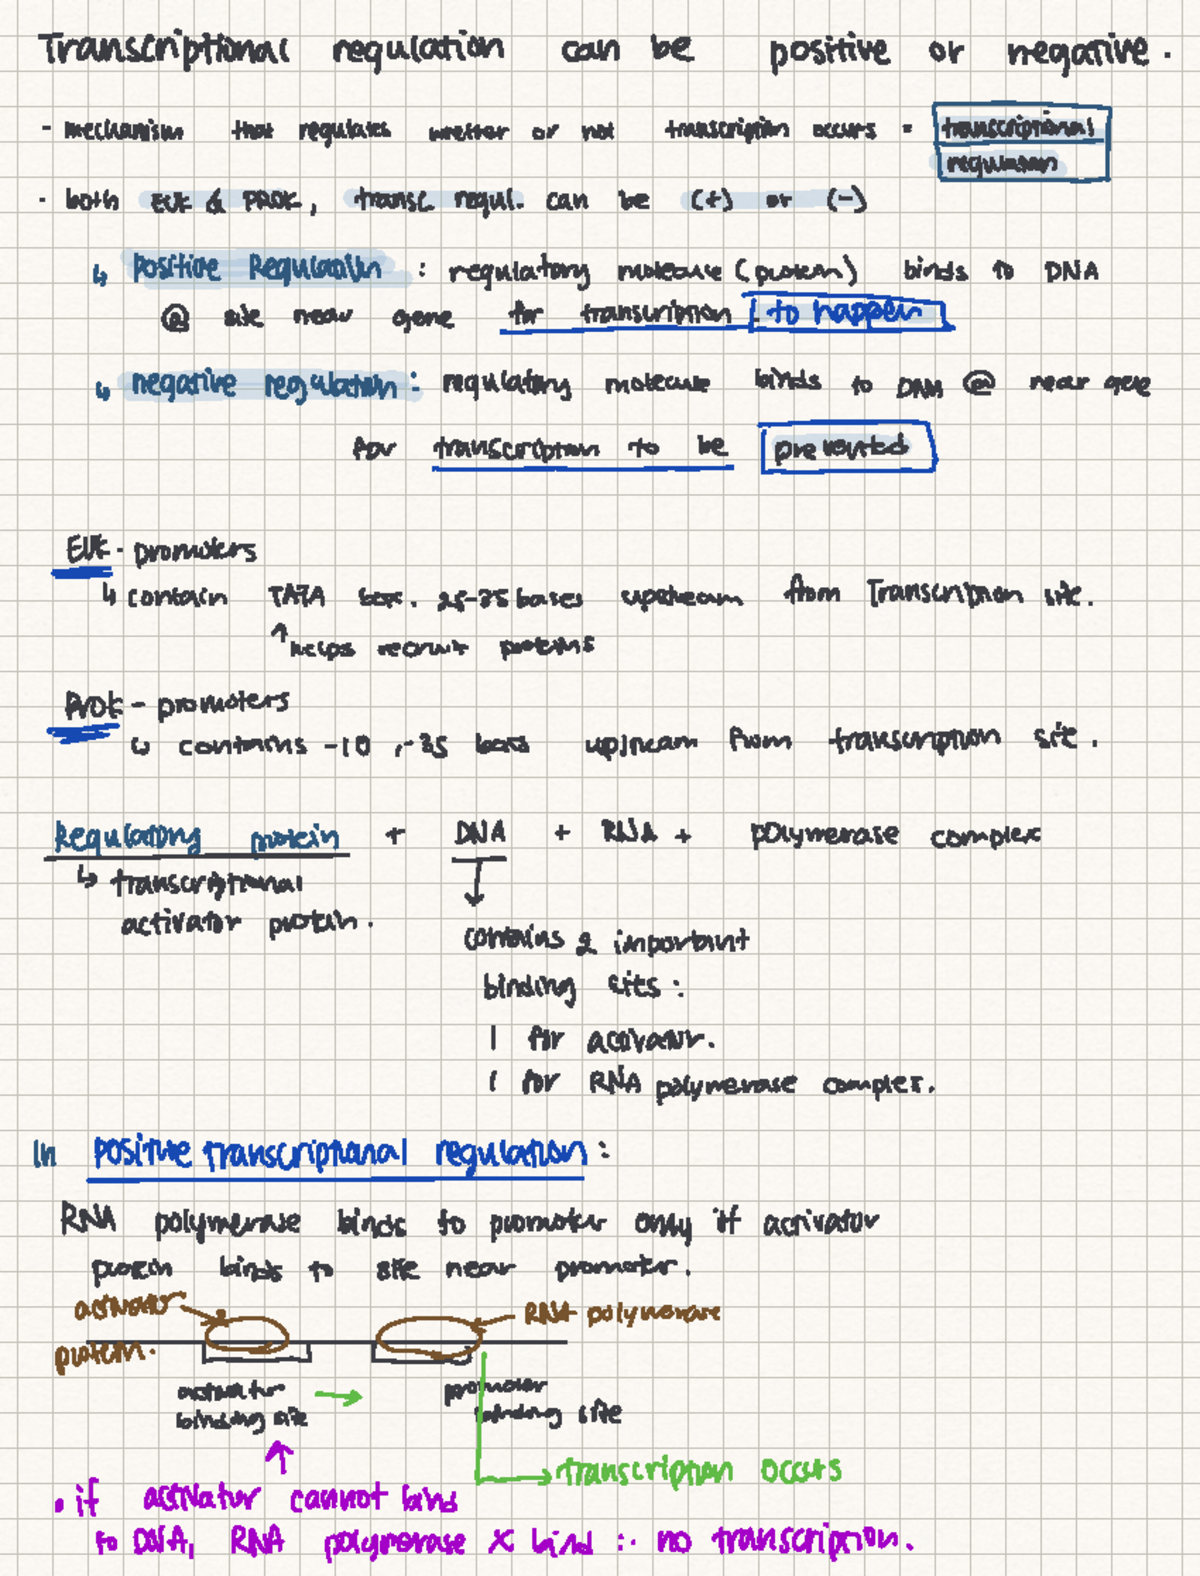 Transcriptional regulation can be positive or negative.
- mechanism that regulates whether or not transcription occurs = transcriptional
regulation
- both EUK & PROK, transc regul. can be (+) or (-)
↳ positive Regulation : regulatory molecule (protein) binds to DNA
@ site near gene for transcription to happen
↳ negative regulation : regulatory molecule binds to DNA @ near gene
for transcription to be prevented
EUK - promoters
↳ contain TATA box. 25-35 bases upstream from Transcription site.
↑ helps recruit proteins
PROK - promoters
↳ contains -10, -35 bases upstream from transcription site.
Regulatory protein + DNA + RNA + polymerase complex
↳ transcriptional
activator protein.
↓
contains 2 important
binding sites :
1 for activator.
1 for RNA polymerase complex.
In positive transcriptional regulation :
RNA polymerase binds to promoter only if activator
protein binds to site near promoter.
activator
protein.
RNA polymerase
activator
binding site
→
promoter
binding site
→ transcription occurs
↑
• if activator cannot bind
to DNA, RNA polymerase X bind ∴ no transcription.